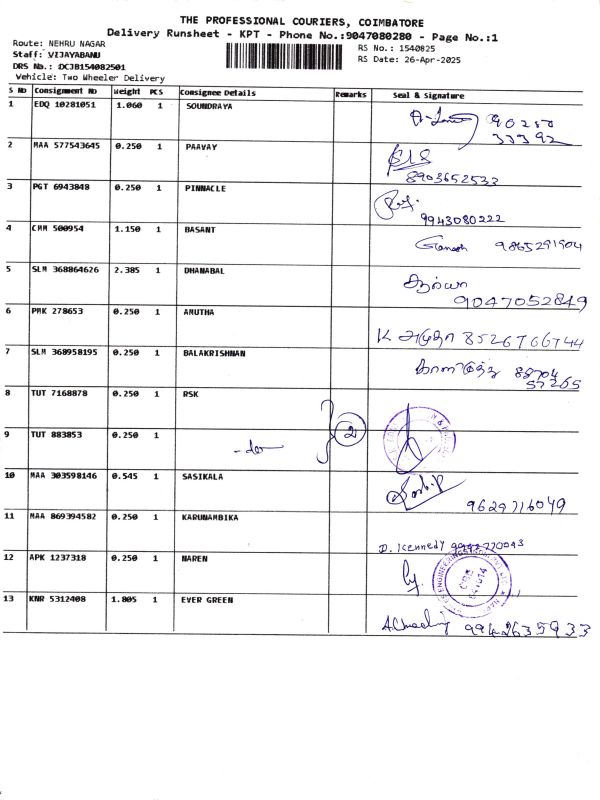 THE PROFESSIONAL COURIERS, COIMBATORE
Delivery Runsheet - KPT - Phone No.:9047080280 - Page No.:1
Route: NEHRU NAGAR
Staff: VIJAYABANU
DRS No.: DCJB154082501
Vehicle: Two Wheeler Delivery
RS No.: 1540825
RS Date: 26-Apr-2025
S No Consignment No Weight PCS Consignee Details Remarks Seal & Signature
1 EDQ 10281051 1.060 1 SOUNDRAYA 90250
33392
2 MAA 577543645 0.250 1 PAAVAY
8903652533
3 PGT 6943848 0.250 1 PINNACLE
9943080222
4 CMM 500954 1.150 1 BASANT Ganesh 9865291904
5 SLM 368864626 2.385 1 DHANABAL
9047052849
6 PMK 278653 0.250 1 AMUTHA K அமுதா 8526766744
7 SLM 368958195 0.250 1 BALAKRISHNAN 88704
57265
8 TUT 7168878 0.250 1 RSK
9 TUT 883853 0.250 1 2
10 MAA 303598146 0.545 1 SASIKALA
9629716049
11 MAA 869394582 0.250 1 KARUNAMBIKA
D. Kennedy
12 APK 1237318 0.250 1 NAREN
13 KNR 5312408 1.805 1 EVER GREEN
9942635933